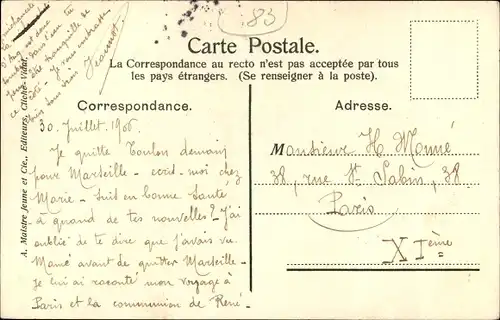 83
Carte Postale.
La Correspondance au recto n'est pas acceptée par tous
les pays étrangers. (Se renseigner à la poste).
Correspondance.
30. Juillet. 1906
Je quitte Toulon demain
pour Marseille - écris-moi chez
Marie - suis en bonne santé
- à quand de tes nouvelles? J'ai
oublié de te dire que j'avais vu
Mamé avant de quitter Marseille -
Je lui ai raconté mon voyage à
Paris et la communion de René.
Je vous embrasse
tous
Jeannot
A. Maistre Jeune et Cie., Editeurs, Cliché Vidal.
Adresse.
Monsieur H. Monné
38, rue St Sabin, 38
Paris
XIème